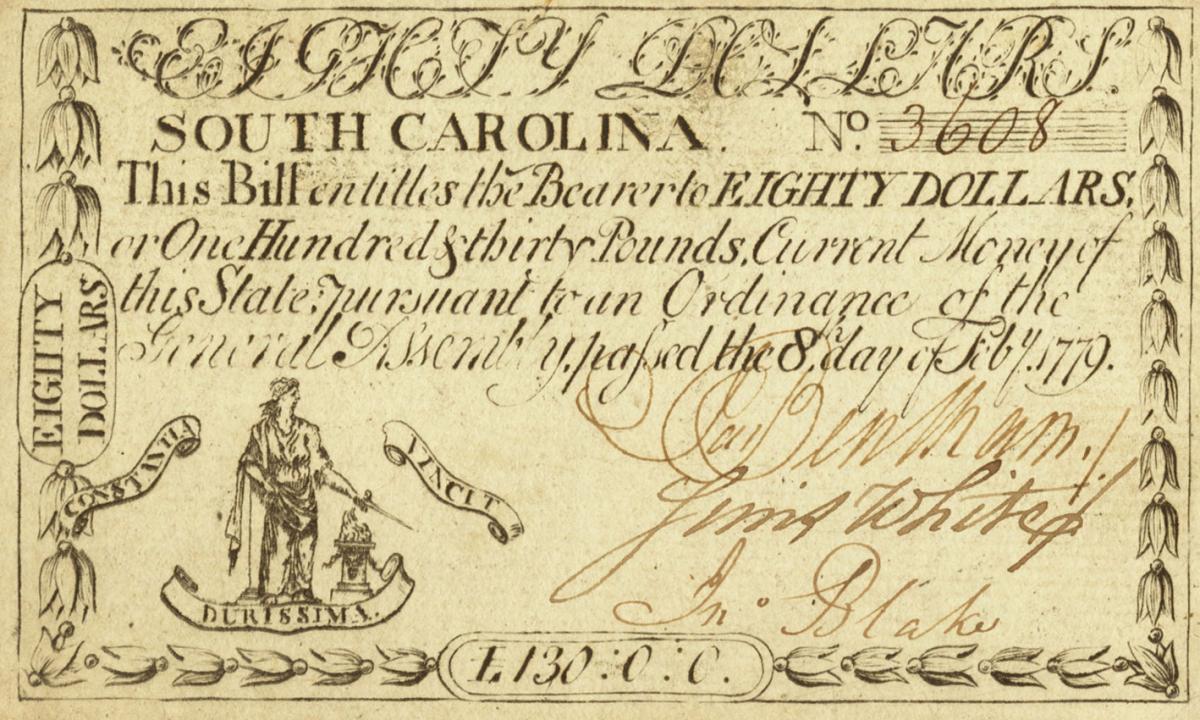 EIGHTY DOLLARS.
SOUTH CAROLINA. No. 3608
This Bill entitles the Bearer to EIGHTY DOLLARS,
or One Hundred & thirty Pounds, Current Money of
this State; pursuant to an Ordinance of the
General Assembly, passed the 8th day of Feby. 1779.
EIGHTY
DOLLARS
CONSTANTIA
VINCIT
DURISSIMA.
Bentham.
White
Jno Blake
£130:0:0.